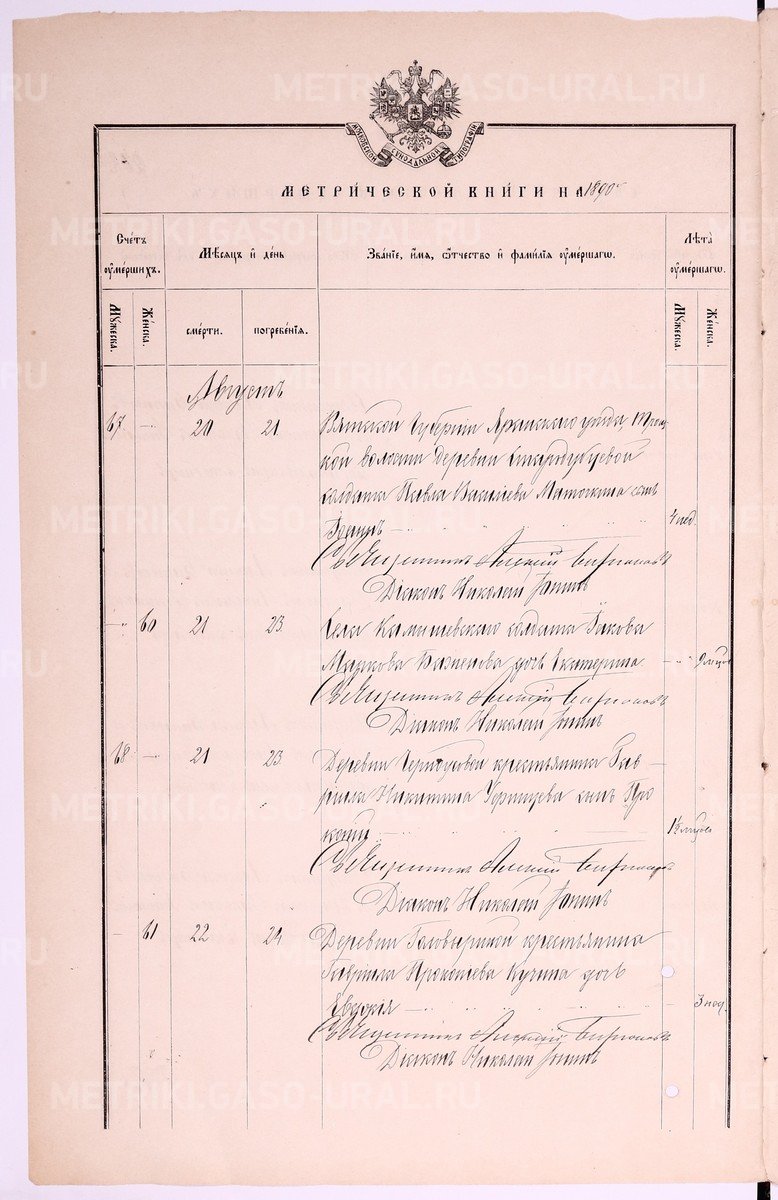 МОСКОВСКОЙ СѴНОДАЛЬНОЙ ТИПОГРАФІИ
МЕТРИ́ЧЕСКОЙ КНИ́ГИ НА 1890
Сче́тъ оу҆ме́ршихъ.
Мѣ́сяцъ и҆ де́нь
Зва́нїе, и҆́мѧ, ѻ҆́тчество и҆ фамилїѧ оу҆ме́ршагѡ.
Лѣта̀ оу҆ме́ршагѡ.
Мꙋ́жеска.
Же́нска.
сме́рти.
погребе́нїѧ.
Мꙋ́жеска.
Же́нска.
Августъ
67 20 21 Вятской Губерніи Яранскаго уѣзда,
кой волости деревни
солдата Павла Василіева сынъ
4 нед.
Священникъ Алексій
Діаконъ Николай
60 21 23 Села Камышевскаго солдата Іакова
Маркова Баженова дочь Екатерина
Священникъ Алексій
Діаконъ Николай
68 21 23 Деревни крестьянина Гав-
ріила Никитина сынъ Про
копій
Священникъ Алексій
Діаконъ Николай
61 22 24 Деревни Головыриной крестьянина
Гавріила Прокопіева дочь
Евдокія 3 нед.
Священникъ Алексій
Діаконъ Николай
METRIKI.GASO-URAL.RU